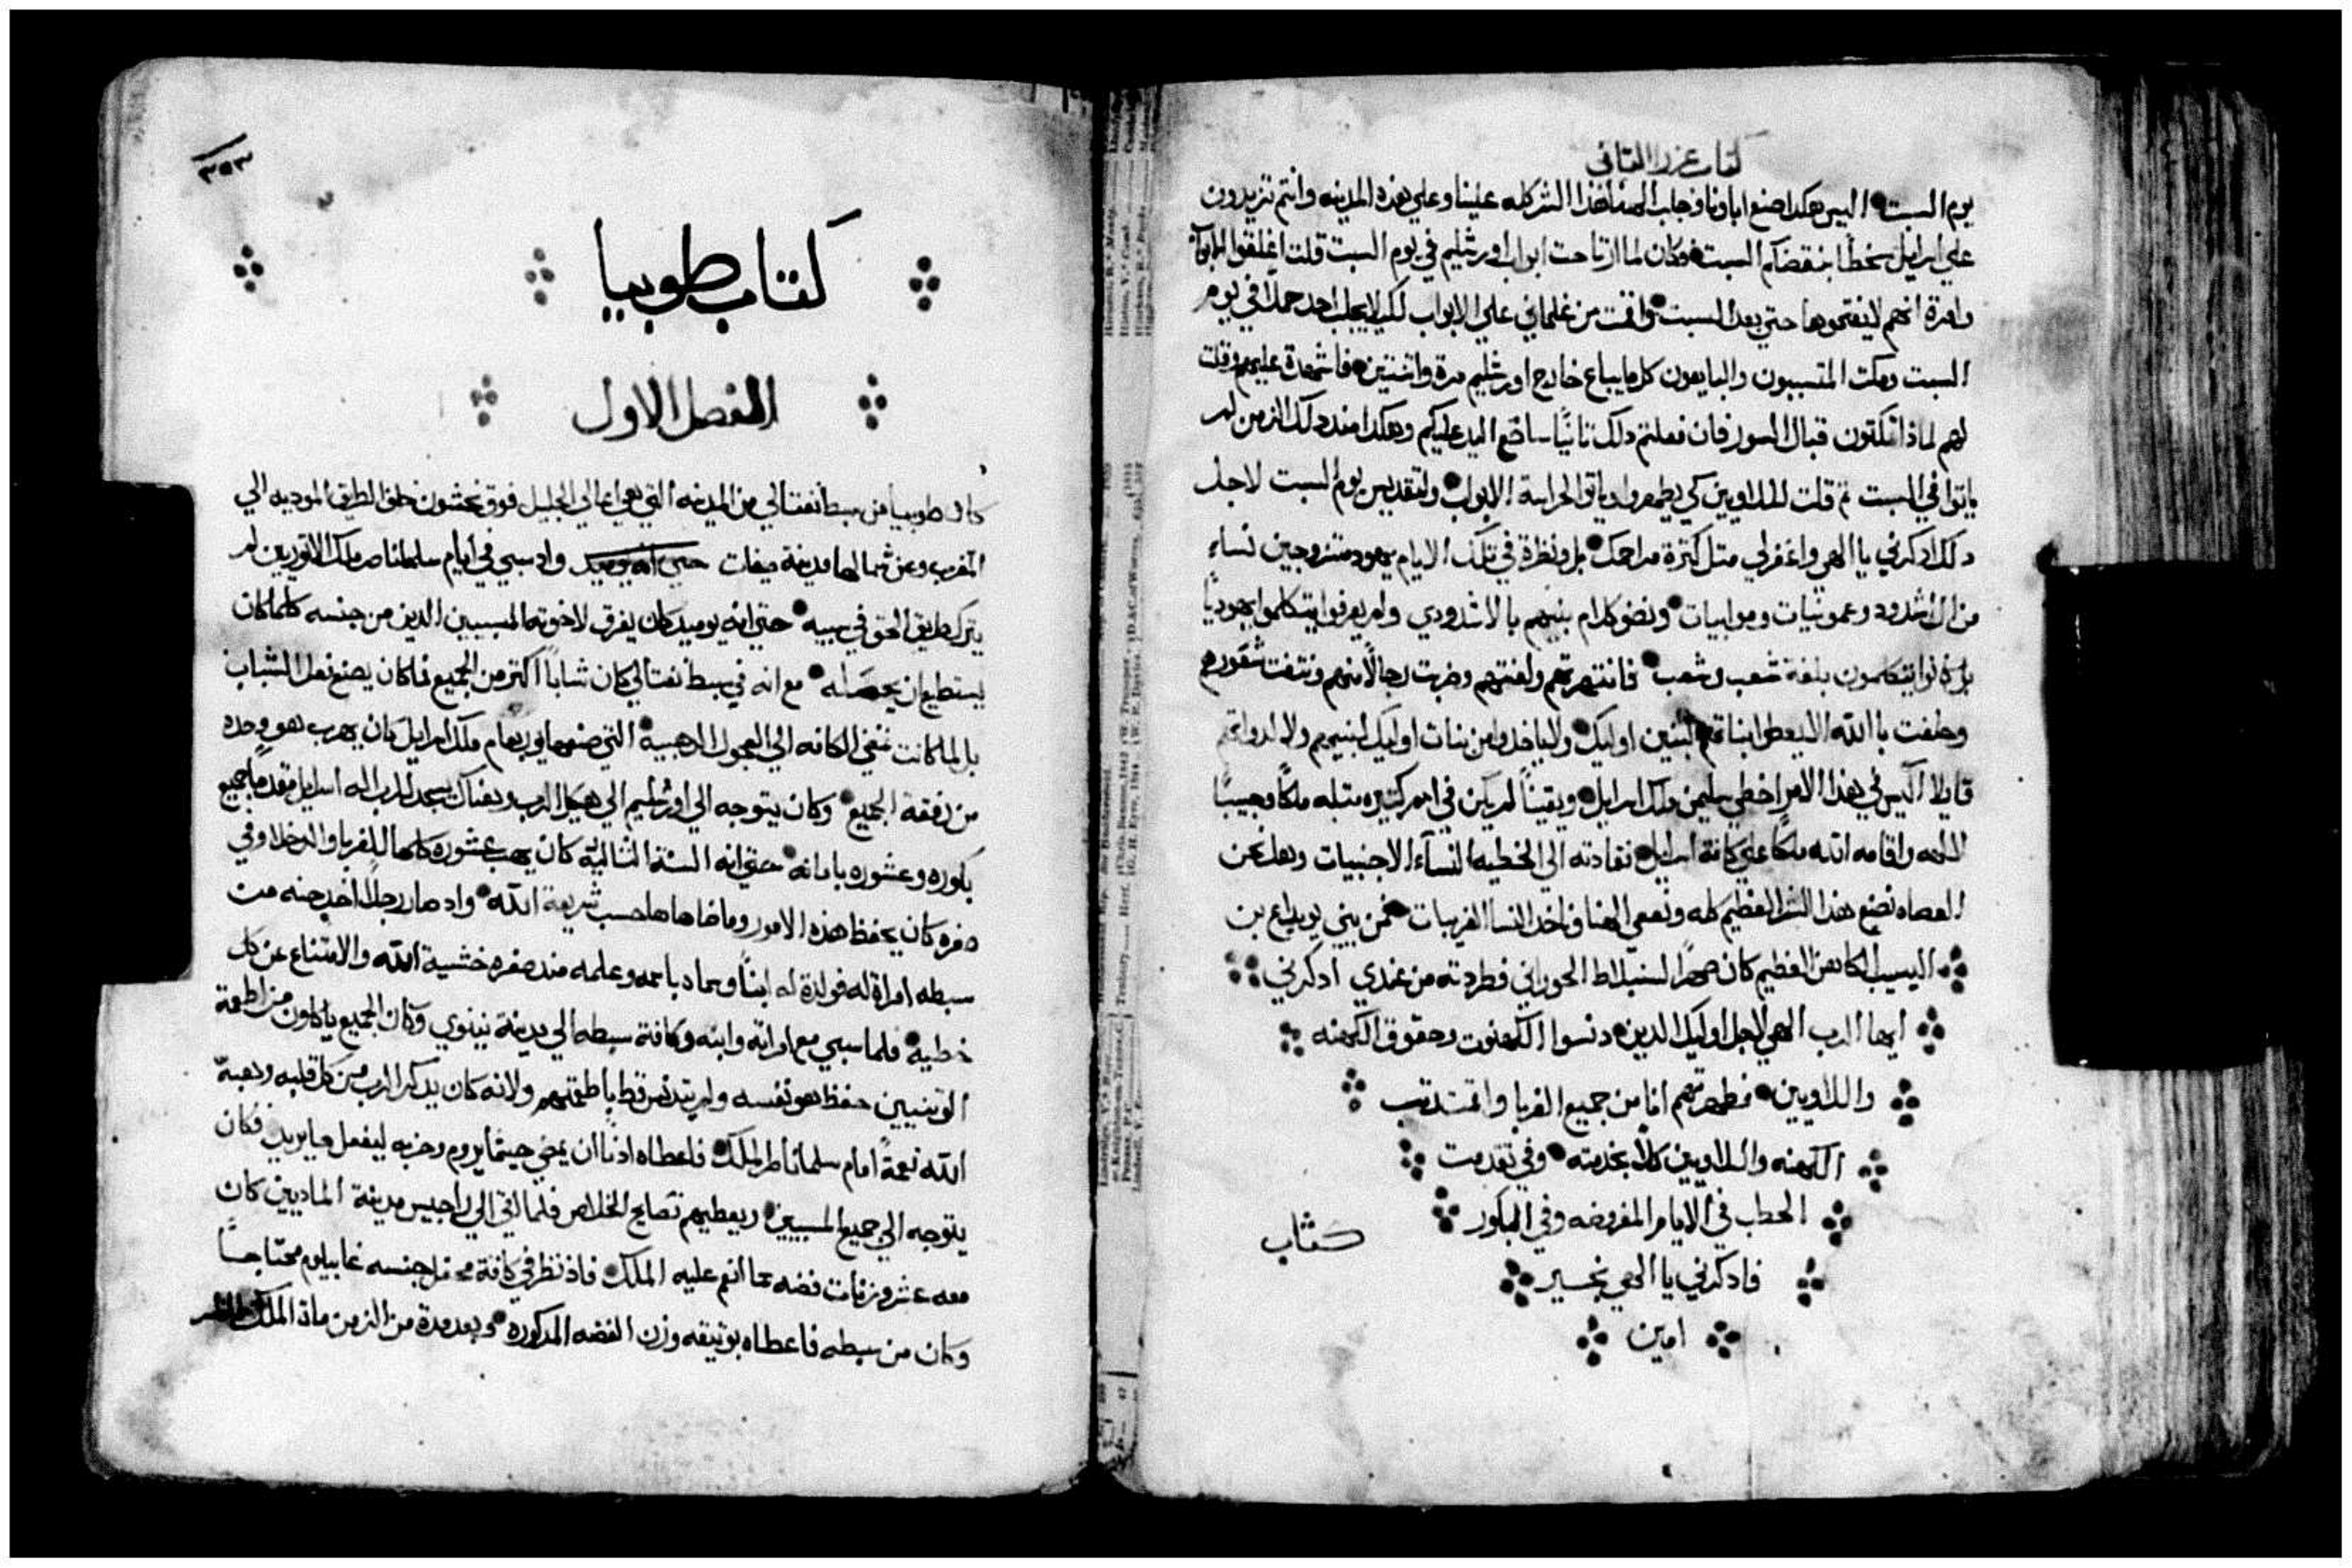 كتاب عزرا الثاني
يوم السبت اليس هكدا صنع اباونا فجلب الهنا هذا الشر كله علينا وعلي هذه المدينه وانتم تزيدون
علي اسرايل سخطًا بنقضكم السبت فكان لما ارتاحت ابواب اورشليم في يوم السبت قلت اغلقوا الابواب
وامرة انهم لا يفتحوها حتي بعد السبت واقمت من غلماني علي الابواب لكيلا يجلب احد حملاً في يوم
السبت ومكت المتسببون والبايعون كل ما يباع خارج اورشليم مرة واتنتين فاشهدة عليهم وقلت
لهم لماذا تمكتون قبال السور فان فعلتم دلك تانيًا ساضع اليد عليكم وهكدا مند دلك الزمن لم
ياتوا في السبت تم قلت للاويين كي يطهروا وياتوا لحراسة الابواب ولتقديس يوم السبت لاجل
دلك ادكرني يا الهي واغفرلي متل كترة مراحمك بل ونظرة في تلك الايام يهود متزوجين نساء
من الاشدود وعمونيات وموابيات ونصف كلام بنيهم بالاشدودي ولم يعرفوا يتكلموا يهوديًا
بل كانوا يتكلمون بلغة شعب وشعب فانتهرتهم ولعنتهم وضربت رجالًا منهم ونتفت شعورهم
وحلفت بالله الا يعطوا بناتهم لبنين اوليك ولا ياخدوا من بنات اوليك لبنيهم ولا لدواتهم
قايلا اليس في هذا الامر اخطي سليمن ملك اسرايل ويقينًا لم يكن في امم كتيره متله ملكًا وحبيبًا
لالهه واقامه الله ملكًا علي كافة اسرايل فقادته الي الخطيه النسآء الاجنبيات وهل نحن
العصاه نصنع هذا الشر العظيم كله ونعصي الهنا وناخد النسا الغريبات فمن بني يويداع بن
اليسيب الكاهن العظيم كان صهرًا لسنبلاط الحوراني فطردته من عندي ادكرني
ايها الرب الهي لاجل اوليك الدين دنسوا الكهنوت وحقوق الكهنه
واللاويين فطهرتهم انا من جميع الغربا واقمت رتب
الكهنه واللاويين كلًا بخدمته وفي تقدمت
الحطب في الايام المفروضه وفي البكور
فادكرني يا الهي بخير
امين
كتاب
٣٥٣
كتاب طوبيا
الفصل الاول
كان طوبيا من سبط نفتالي من المدينه التي هي اعالي الجليل فوق نحشون خلف الطريق الموديه الي
المغرب وعن شمالها مدينة صفات حتي انه يوميد واد سبي في ايام سلمناصر ملك الاتوريين لم
يترك طريق الحق في سبيه حتي انه يوميد كان يفرق لاخوته المسبيين الدين من جنسه كلما كان
يستطيع ان يحصله مع انه في سبط نفتالي كان شابًا اكتر من الجميع فما كان يصنع فعل الشباب
بل لما كانت تمضي الكافه الي العجول الدهبية التي صنعها يوربعام ملك اسرايل كان يهرب هو وحده
من رفقة الجميع وكان يتوجه الي اورشليم الي هيكل الرب وهناك يسجد للرب اله اسرايل مقدمًا جميع
بكوره وعشوره بامانه حتي انه السنة الثالثه كان يهب عشوره كلها للغربا والدخلا وفي
صغره كان يحفظ هذه الامور وما ضاهاها حسب شريعة الله واد صار رجلًا اخد حنه من
سبطه امراة له فولدة له ابنًا وسماه باسمه وعلمه مند صغره خشية الله والامتناع عن كل
خطيه فلما سبي مع امراته وابنه وكافة سبطه الي مدينة نينوي وكان الجميع ياكلون من اطعمة
الوتنيين حفظ هو نفسه ولم يتدنس قط باطعمتهم ولانه كان يدكر الرب من كل قلبه وهبه
الله نعمةً امام سلمناصر الملك فاعطاه ادنًا ان يمضي حيثما يروم وحريه ليفعل ما يريد فكان
يتوجه الي جميع المسبيين ويعطيهم نصايح الخلاص فلما اتي الي راجيس مدينة الماديين كان
معه عشر وزنات فضه مما انعم عليه الملك فاد نظر في كافة محفل جنسه غابيلوم محتاجًا
وكان من سبطه فاعطاه بوتيقه وزن الفضه المدكوره وبعد مدة من الزمن مات الملك